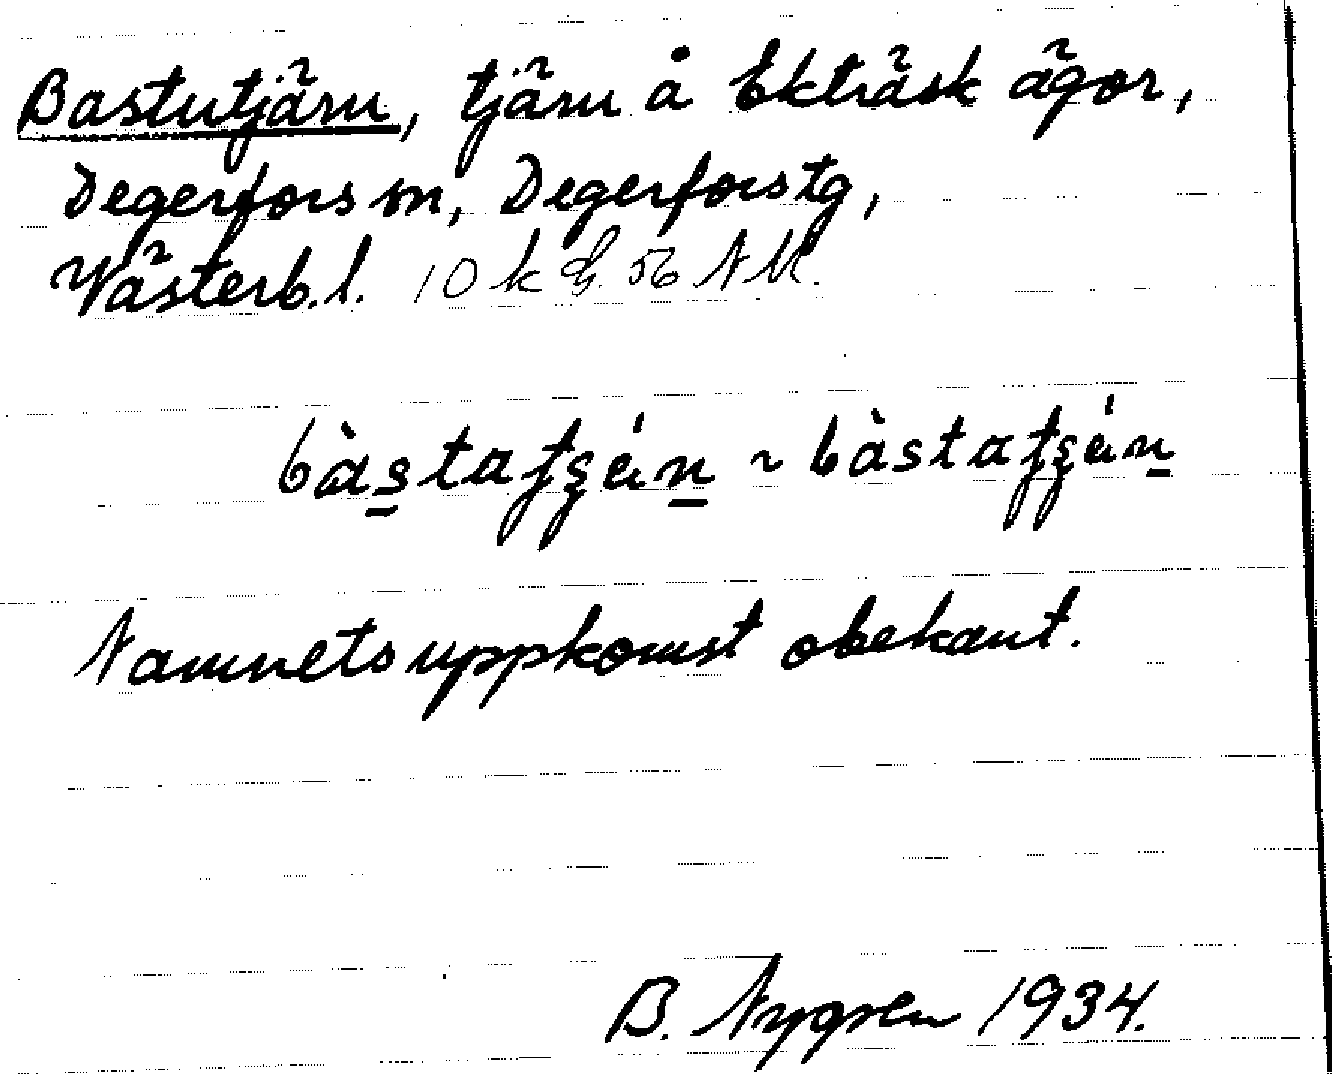 Bastutjärn, tjärn å Ekträsk ägor,
Degerfors sn, Degerfors tg,
Västerb.l. 10 k G. 56 NM.
bàstatʂɛ́n ~ bàstatʂɛ́n
Namnets uppkomst obekant.
B. Nygren 1934.